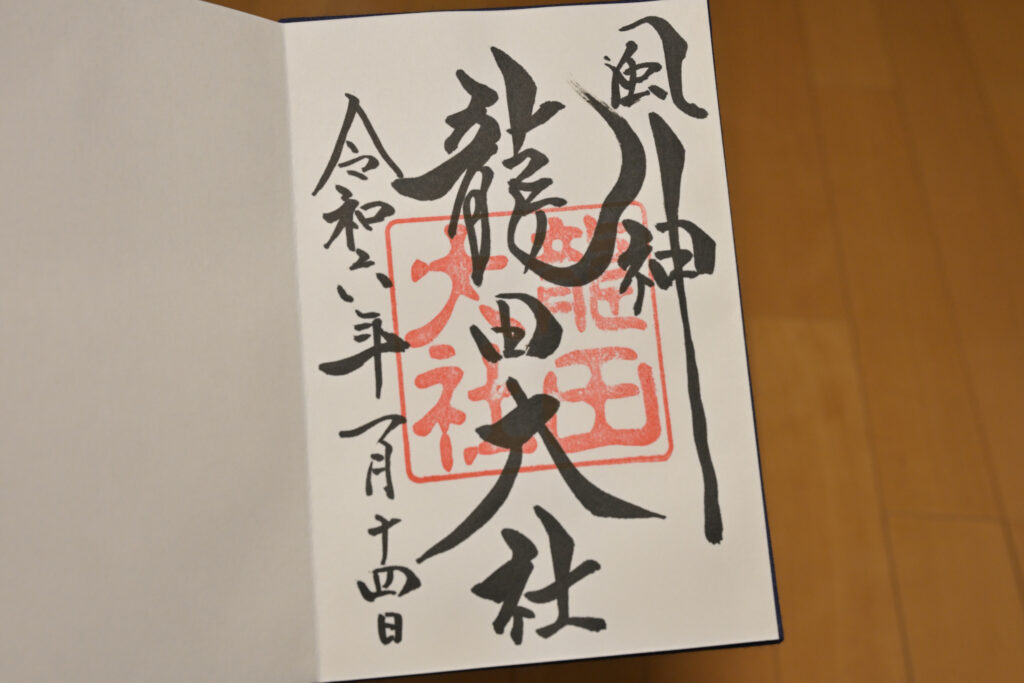 風神
龍田大社
龍田
大社
令和六年一月十四日